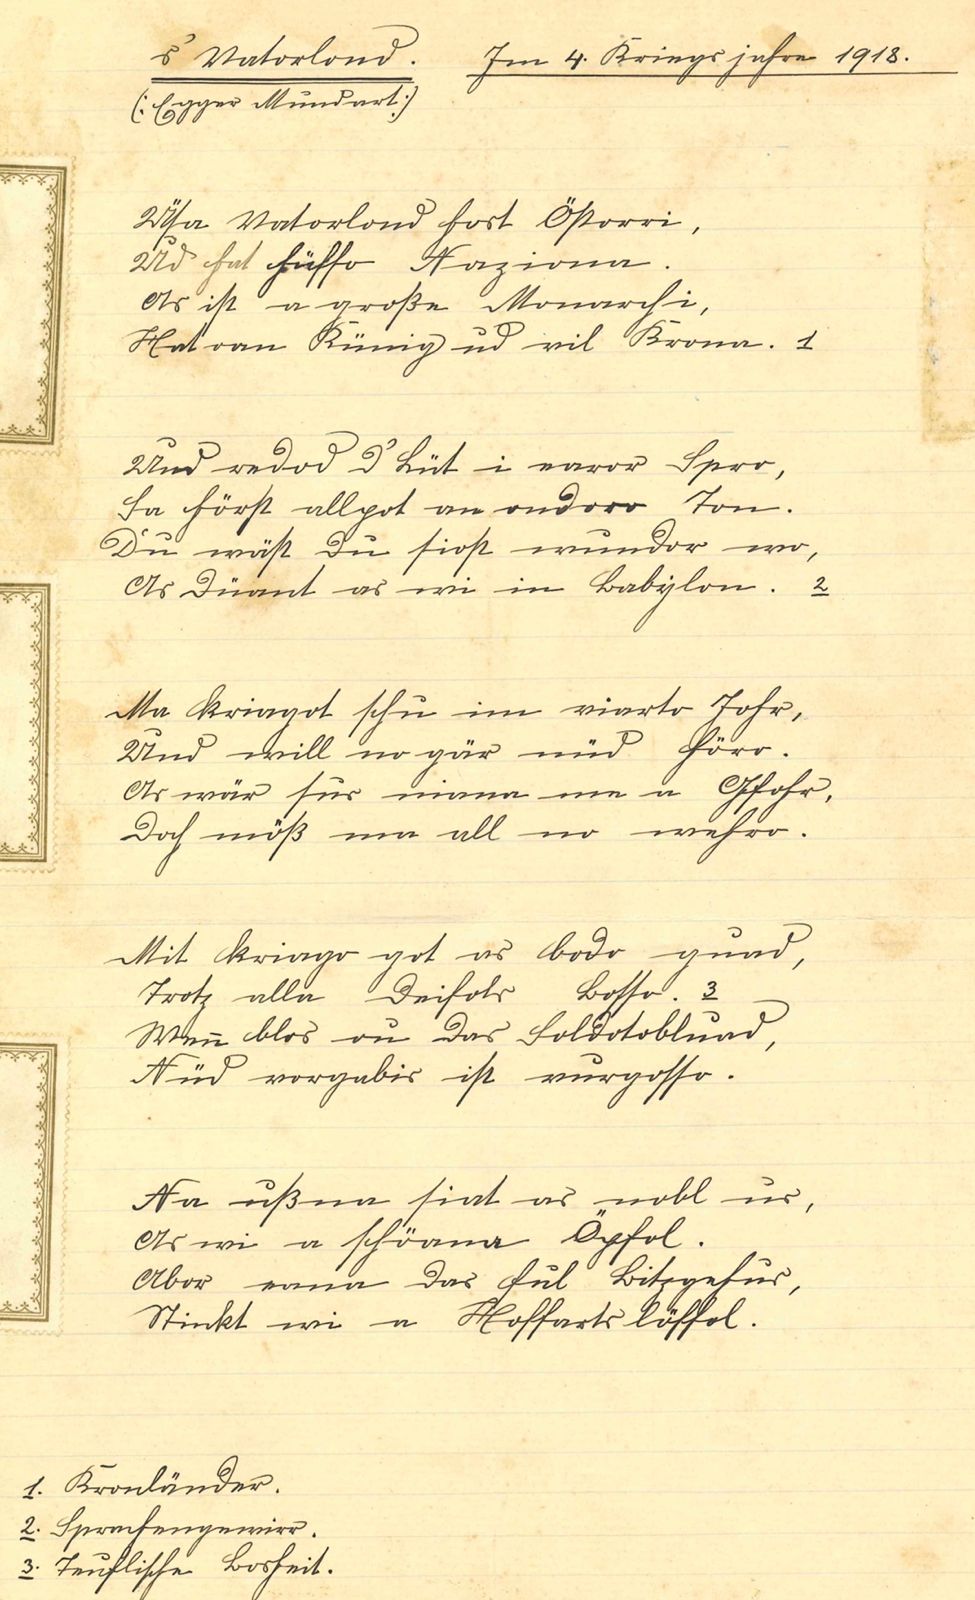 s' Vatorlond. Im 4. Kriegsjahre 1918.
(: Egger Mundart :)
Üsa Vatorlond host Östorri,
Ud hat hüffo Naziona.
As ist a große Monarchi,
Hat oan Künig ud vil Krona. 1
Und redod d' Lüt i earor Spro,
Sa hörst allpot an ondoro Ton.
Du wäst du siost wundor wo,
As düant as wi in Babylon. 2
Ma kriagot schu im viarto Johr,
Und will no gär nüd höro.
As wär sus niana me a Gfohr,
Doch möß ma all no wehro.
Mit kriago got as bodo guad,
Trotz alla Deifols Bosso. 3
Wen̄ blos ou das Soldotobluad,
Nüd vorgabis ist vurgosso.
Na ußna siat as nobl us,
As wi a schöana Öpfol.
Abor eana das ful Bitzgehus,
Stinkt wi a Hoffartslöffol.
1. Kronländer.
2. Sprachengewirr.
3. Teuflische Bosheit.